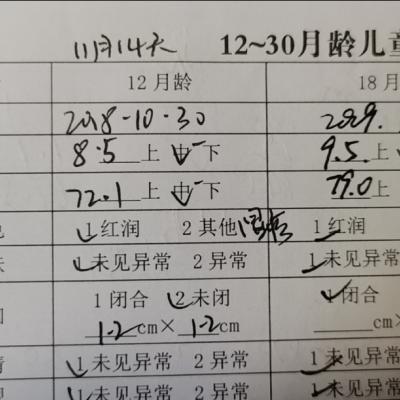 11月14天 12~30月龄儿童
12月龄 18月
2018-10-30 2019.
8.5 上 中- 下 9.5 上
72.1 上 中- 下 79.0 上
1 红润 2 其他 1 红润
1 未见异常 2 异常 1 未见异常
1 闭合 2 未闭 1 闭合
1.2 cm× 1.2 cm cm×
1 未见异常 2 异常 1 未见异常
1 未见异常 2 异常 1 未见异常